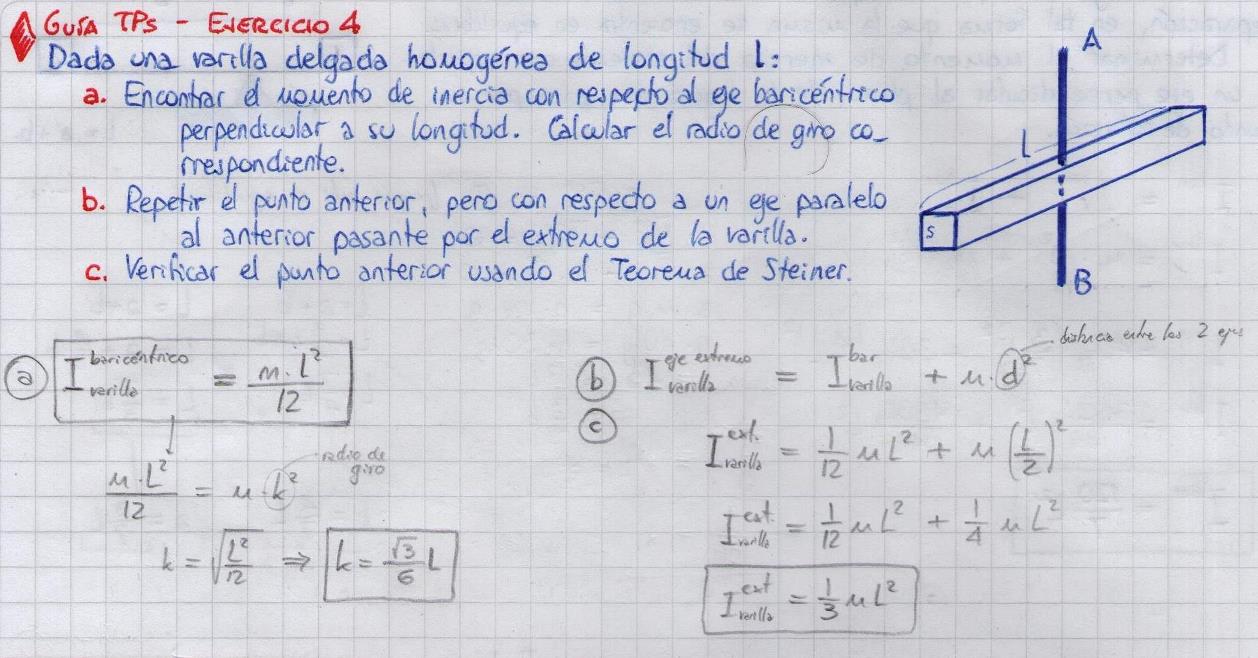 GUÍA TPs - EJERCICIO 4
Dada una varilla delgada homogénea de longitud l:
a. Encontrar el momento de inercia con respecto al eje baricéntrico
perpendicular a su longitud. Calcular el radio de giro co-
rrespondiente.
b. Repetir el punto anterior, pero con respecto a un eje paralelo
al anterior pasante por el extremo de la varilla.
c. Verificar el punto anterior usando el Teorema de Steiner.
A
l
S
B
a I baricéntrico varilla = m.L²/12
m.L²/12 = m.k²
radio de giro
k = √(L²/12) ⇒ k = √3/6 L
b I eje extremo varilla = I bar varilla + m.d²
distancia entre los 2 ejes
c
I ext. varilla = 1/12 mL² + m (L/2)²
I ext. varilla = 1/12 mL² + 1/4 mL²
I ext varilla = 1/3 mL²